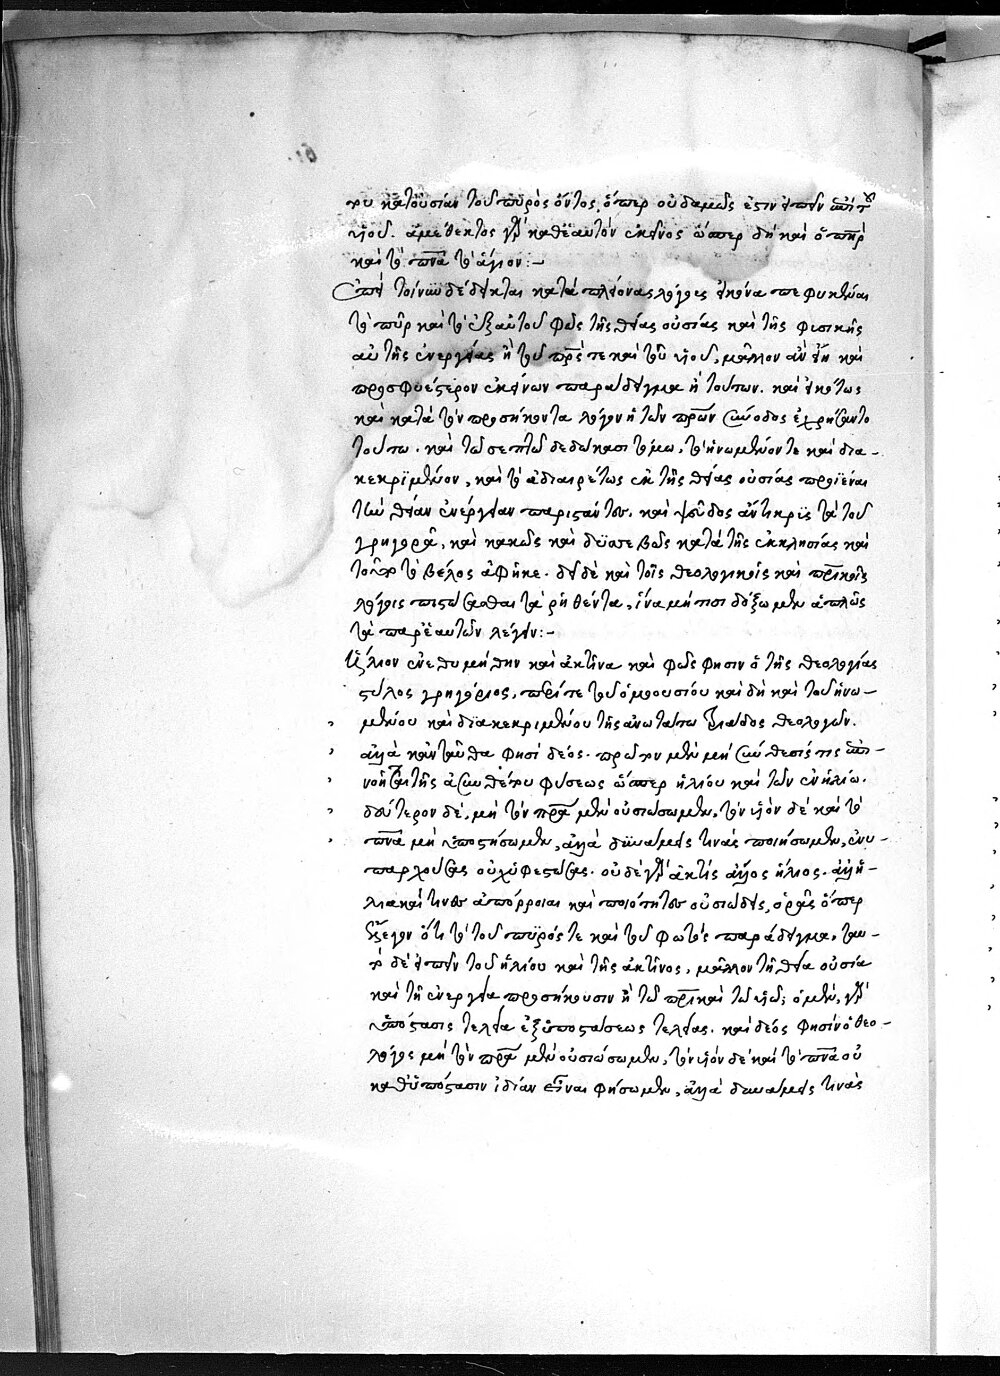 του κατουσίαν τοῦ πυρὸς ὄντος, ὅπερ οὐδαμῶς ἐστιν εἰπεῖν ἐπὶ τοῦ
υἱοῦ. ἀμέθεκτος γὰρ καθεαυτὸν ἐκεῖνος ὥσπερ δὴ καὶ ὁ πηρ
καὶ τὸ πνα τὸ ἅγιον:-
τοίνυν δέδεικται κατὰ πλείονας λόγους εἰκόνα πεφυκέναι
τὸ πῦρ καὶ τὸ ἐξ αὐτοῦ φῶς τῆς θείας οὐσίας καὶ τῆς φυσικῆς
αὐτῆς ἐνεργείας ἢ τοῦ πρς τε καὶ τοῦ υἱοῦ, μᾶλλον ἂν εἴη καὶ
προσφυέστερον ἐκείνων παράδειγμα ἢ τούτων. καὶ εἰκότως
καὶ κατὰ τὸν προσήκοντα λόγον ἡ τῶν πρων σύνοδος ἐχρήσαντο
τούτω. καὶ τῶ σεπτῶ δεδώκασι τόμω, τὸ ἡνωμένον τε καὶ δια-
κεκριμένον, καὶ τὸ ἀδιαιρέτως ἐκ τῆς θείας οὐσίας προϊέναι
τὴν θείαν ἐνέργειαν παριστάντες. καὶ ψεῦδος ἄντικρυς τὰ τοῦ
γρηγορᾶ, καὶ κακῶς καὶ δυσσεβῶς κατὰ τῆς ἐκκλησίας καὶ
τὸ βέλος ἀφῆκε. δεῖ δὲ καὶ τοῖς θεολογικοῖς καὶ πρικοῖς
λόγοις πιστώσασθαι τὰ ῥηθέντα, ἵνα μή τισι δόξωμεν ἁπλῶς
τὰ παρεαυτῶν λέγειν:-
Ἥλιον ἐνεθυμήθην καὶ ἀκτῖνα καὶ φῶς φησιν ὁ τῆς θεολογίας
στύλος γρηγόριος, περί τε τοῦ ὁμοουσίου καὶ δὴ καὶ τοῦ ἡνω-
μένου καὶ διακεκριμένου τῆς ἀνωτάτω τριάδος θεολογῶν.
ἀλλὰ κἀνταῦθα φησὶ δέος. πρῶτον μὲν μὴ σύνθεσίς τις ἐπι-
νοηθῆ τῆς ἀσυνθέτου φύσεως ὥσπερ ἡλίου καὶ τῶν ἐν ἡλίω.
δεύτερον δὲ, μὴ τὸν πρα μὲν οὐσιώσωμεν, τὸν υἱὸν δὲ καὶ τὸ
πνα μὴ ὑποστήσωμεν, ἀλλὰ δυνάμεις τινὰς ποιήσωμεν, ἐνυ-
παρχούσας οὐχ ὑφεστώσας. οὐδὲ γὰρ ἀκτὶς ἄλλος ἥλιος. ἀλλ' ἡ-
λιακαί τινες ἀπόρροιαι καὶ ποιότητες οὐσιώδεις, ὁρᾶς ὅπερ
ἔλεγον ὅτι τὸ τοῦ πυρός τε καὶ τοῦ φωτὸς παράδειγμα, ταυ-
τὸ δὲ εἰπεῖν τοῦ ἡλίου καὶ τῆς ἀκτῖνος, μᾶλλον τῆ θεία οὐσία
καὶ τῆ ἐνεργεία προσήκουσιν ἢ τῶ πρι καὶ τῶ υἱῶ; ὁ μὲν γὰρ
ὑπόστασις τελεία ἐξ ὑποστάσεως τελείας. καὶ δέος φησὶν ὁ θεο-
λόγος μὴ τὸν πρα μὲν οὐσιώσωμεν, τὸν υἱὸν δὲ καὶ τὸ πνα οὐ
καθ ὑπόστασιν ἰδίαν εἶναι φήσωμεν, ἀλλὰ δυνάμεις τινὰς